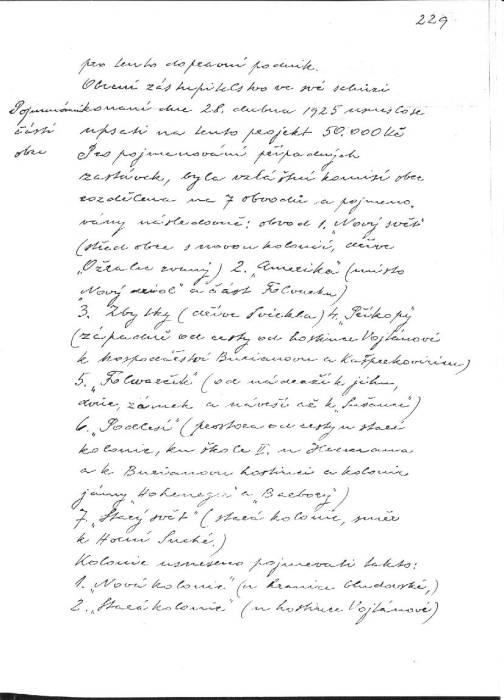 229
pro tento dopravní podnik.
Obecní zastupitelstvo ve své schůzi
Pojmenování konané dne 28. dubna 1925 usneslo se
části upsati na tento projekt 50.000 Kč
obce Pro pojmenování případných
zastávek, byla zvláštní komisí obec
rozdělena na 7 obvodů a pojmeno-
vány následovně: obvod 1. „Nový svět"
(střed obce s novou kolonií, dříve
zvaný) 2. „Amerika" (místo
„Nový a část Folvarku)
3. Zbytky (dříve Švickla) 4. „Příkopy"
(západně od cesty od hostince Vojtánové
k hospodářství Burianovu a Kašperkovicím)
5. „Folwarčik" (od nádraží k jihu,
dvůr, zámek a návsí až k Sušance)
6. „Podlesí" (prostora od cesty u staré
kolonie, ku škole II. u Hermana
a k Burianovu hostinci a kolonie
jámy „Hohenegr" a „Barbory")
7. „Starý svět" (stará kolonie, směr
k Horní Suché.)
Kolonie usneseno pojmenovati takto:
1. „Nová kolonie" (u hranice Chudovské,)
2. „Stará kolonie" (u hostince Vojtánové)